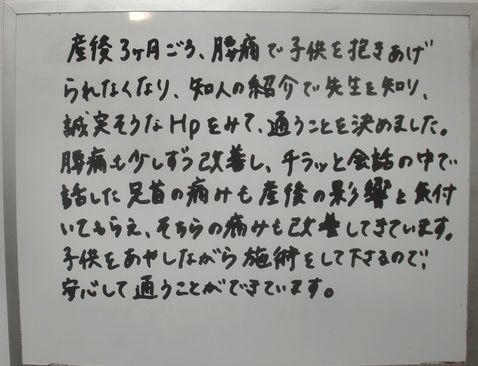 産後3ヶ月ごろ、腰痛で子供を抱きあげ
られなくなり、知人の紹介で先生を知り、
誠実そうなHpをみて、通うことを決めました。
腰痛も少しずつ改善し、チラッと会話の中で
話した足首の痛みも産後の影響と気付
いてもらえ、そちらの痛みも改善してきています。
子供をあやしながら施術をして下さるので、
安心して通うことができています。